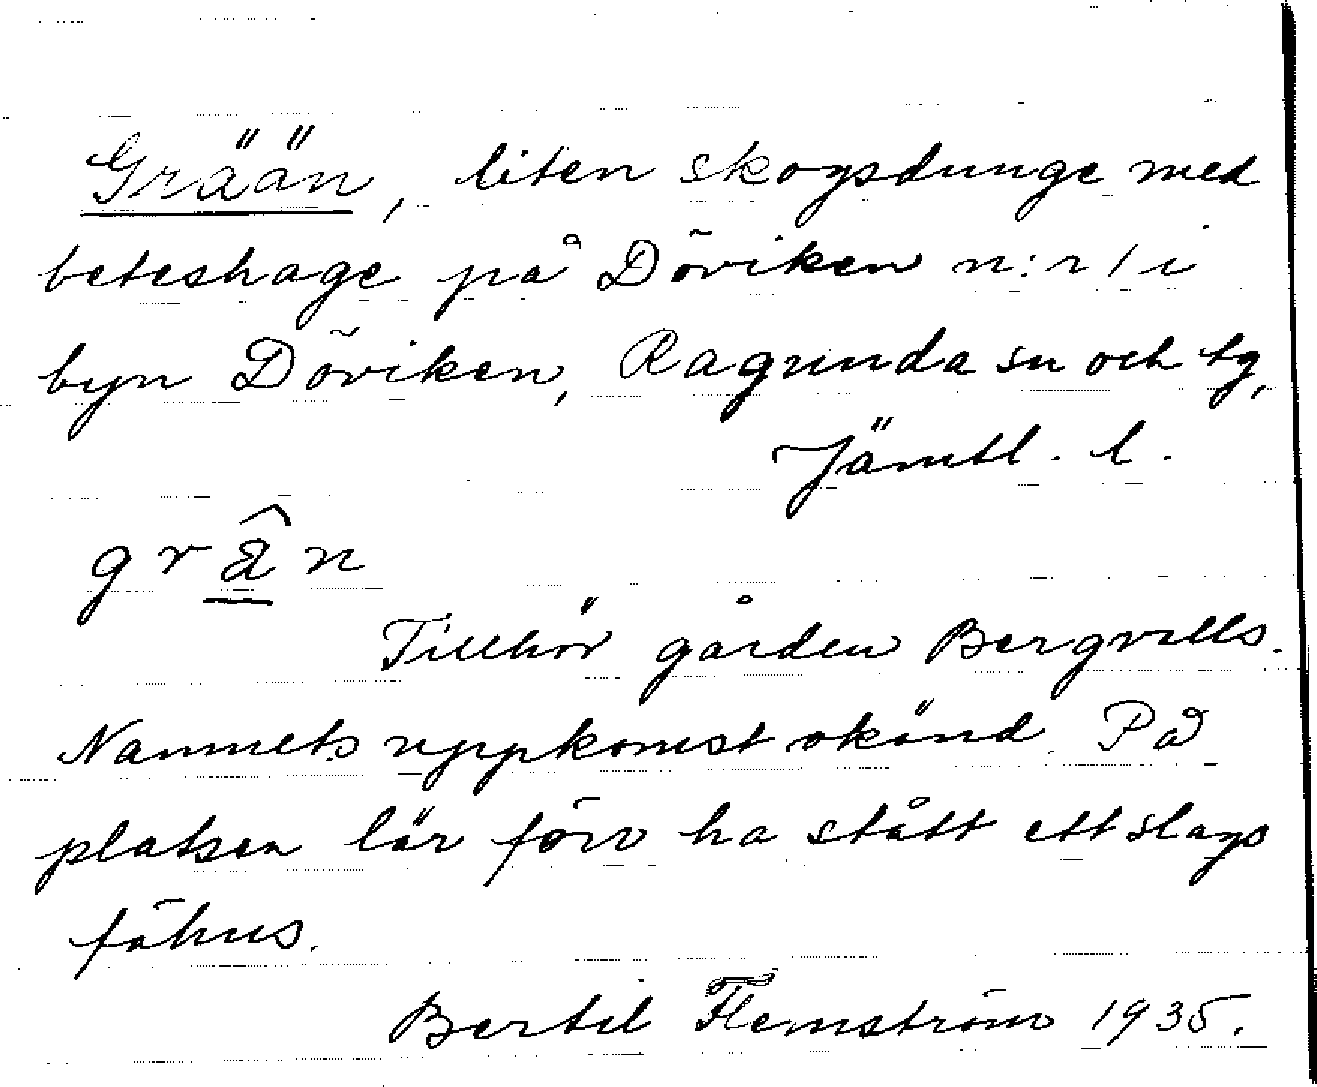 Grään, liten skogsdunge med
beteshage på Döviken n:r 1 i
byn Döviken, Ragunda sn och tg,
Jämtl. l.
grân
Tillhör gården Bergvills.
Namnets uppkomst okänd. På
platsen lär förr ha stått ett slags
fähus.
Bertil Flemström 1935.